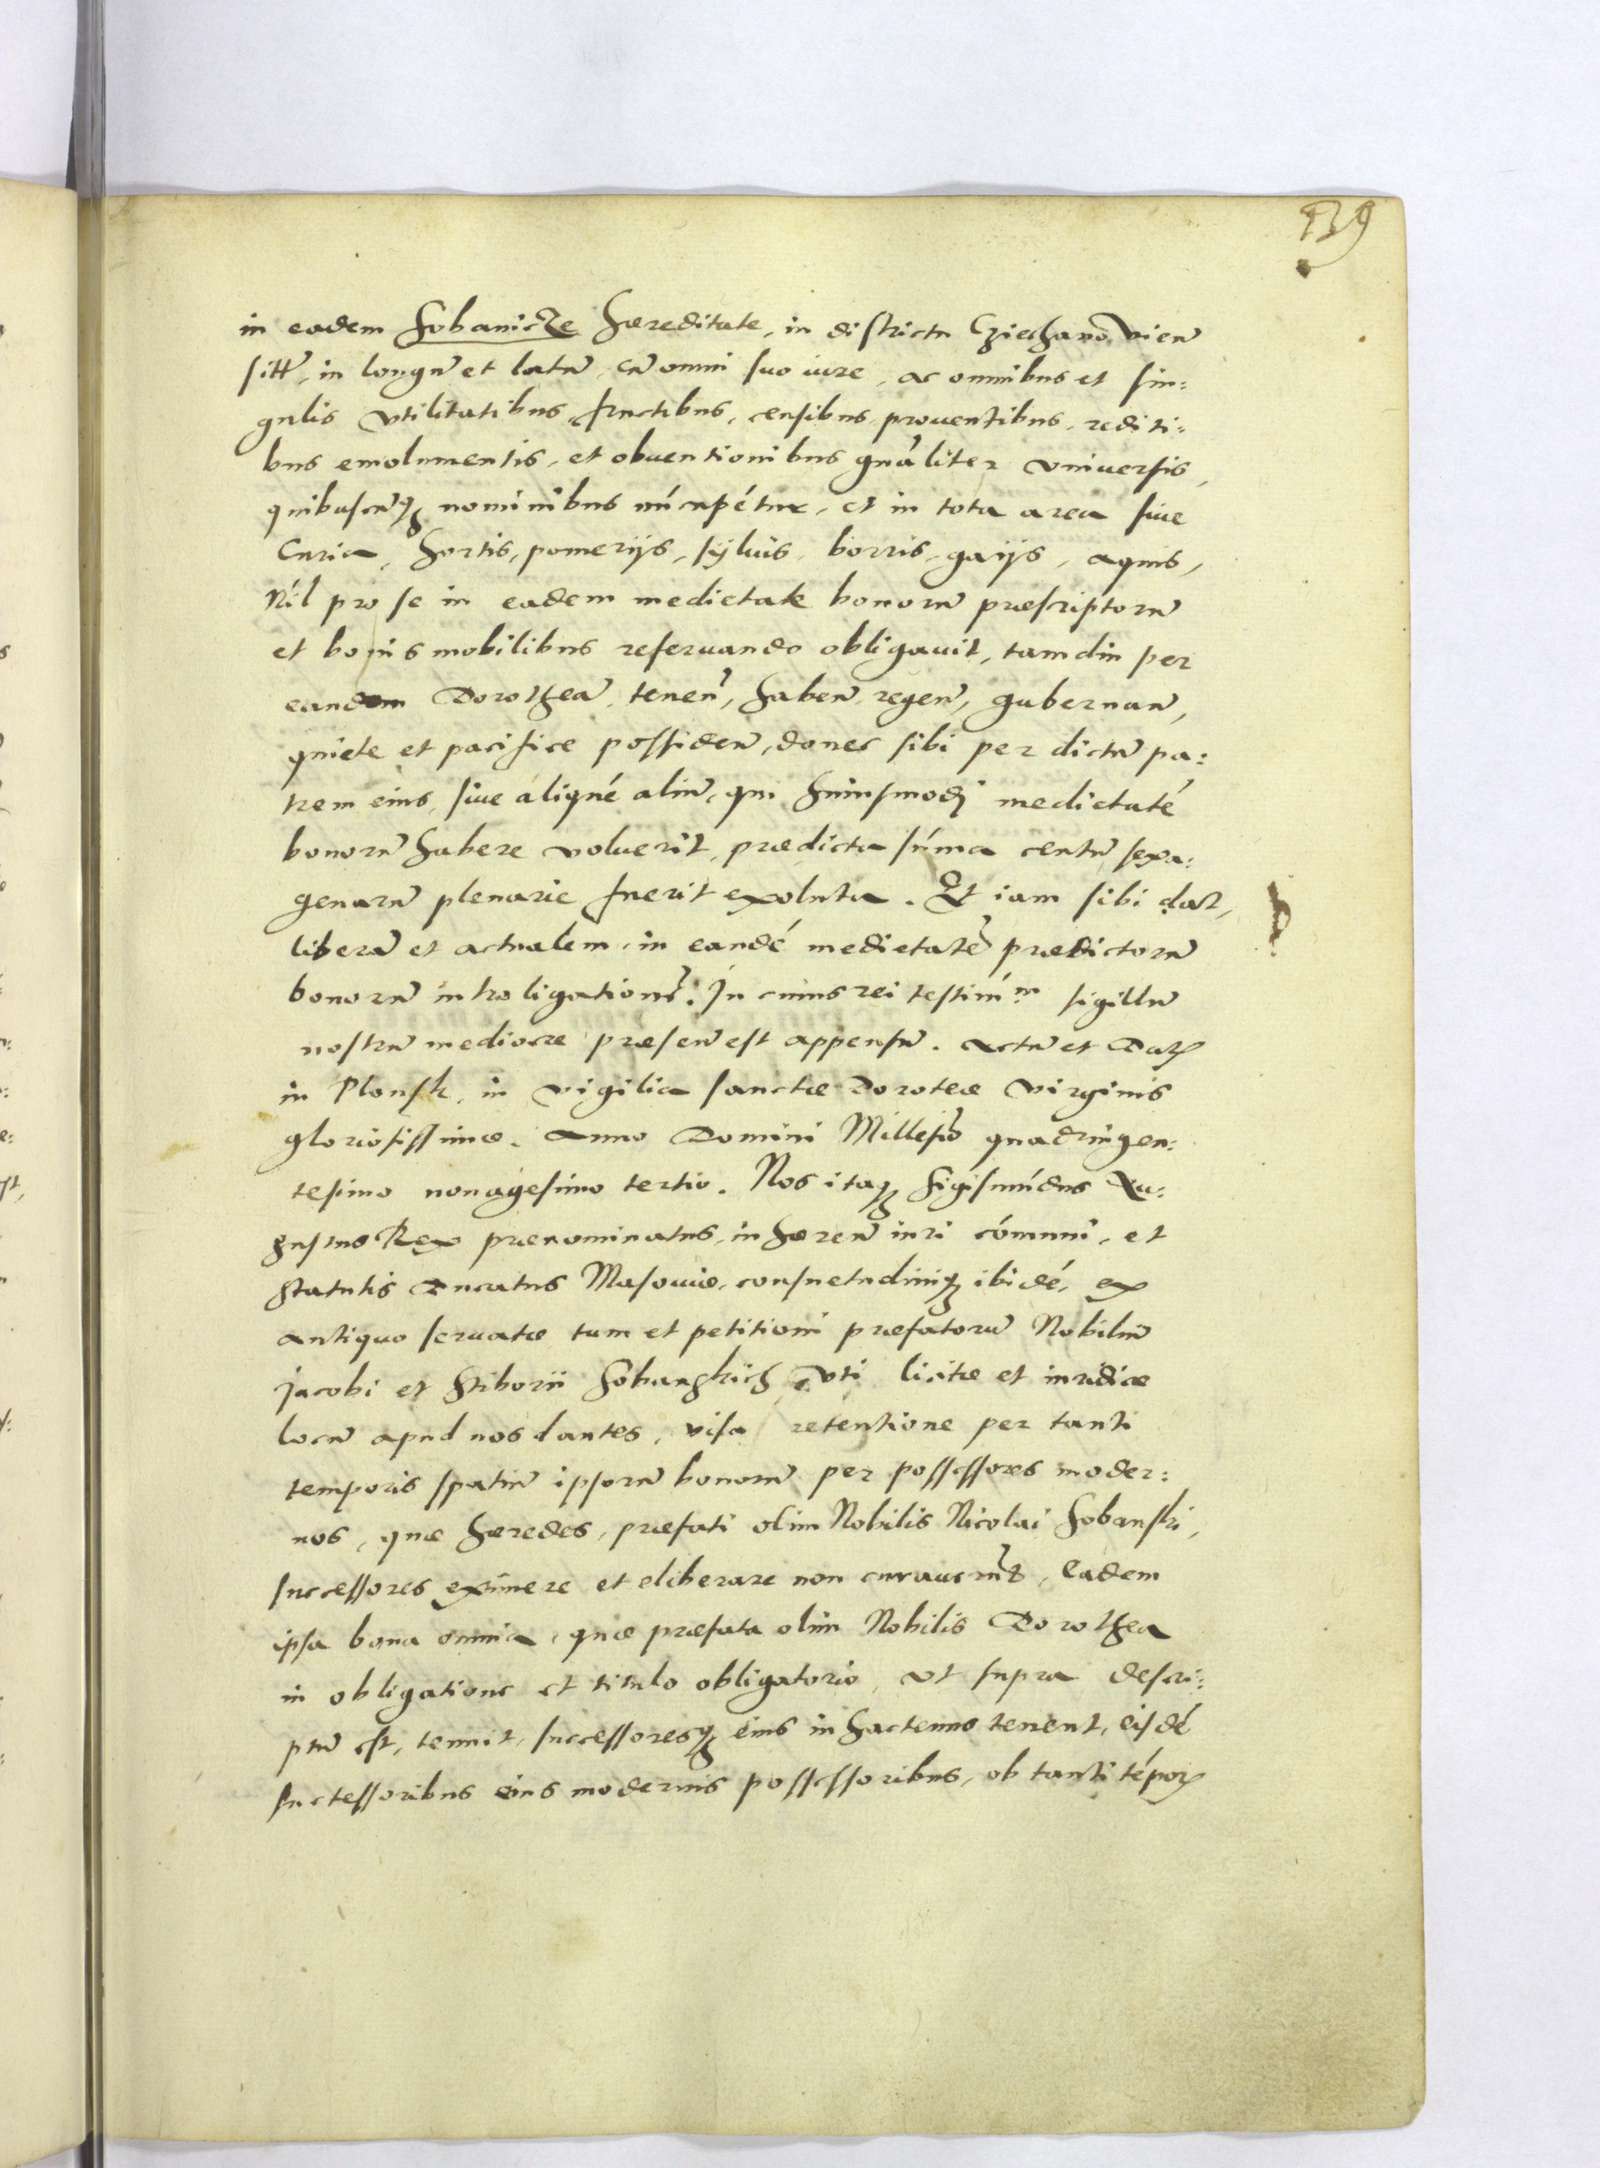 139
in eadem Sobanicze hæreditate, in districtu Cziechanovien̄
sitt̄, in longū et latū, cū omni suo iure, ac omnibus et sin:
gulis vtilitatibus, fructibus, censibus, prouentibus, rediti:
bus emolumentis, et obuentionibus gnāliter vniuersis,
quibuscūq nominibus nūcupētur, et in tota area siue
Curia, hortis, pomerijs, syluis, borris, gaijs, aquis,
Nīl pro se in eadem medietate bonorū præscriptorū
et bonis mobilibus reseruando obligauit, tamdiu per
eandem Dorotheā, tenen̄, haben̄, regen̄, gubernan̄,
quiete et pacifice possiden̄, donec sibi per dictū pa:
trem eius, siue aliquē aliū, qui huiusmodi medietatē
bonorū habere voluerit, prædicta sūma centū sexa:
genarū plenarie fuerit exoluta. Et iam sibi dat,
liberā et actualem, in eandē medietatē prædictorū
bonorū intro ligationē. In cuius rei testim̄m sigillū
nostrū mediocre præsen̄ est appensū. Actū et Dat
in Plonsk, in vigilia sanctæ Doroteæ virginis
gloriosissimæ. Anno Domini Millesīo quadringen:
tesimo nonagesimo tertio. Nos itaq Sigismūdus Au:
gustus Rex prænominatus, inhæren̄ iuri cōmuni, et
statutis Ducatus Masouiæ, consuetudiniq ibidē, ex
antiquo seruatæ tum et petitioni præfatorū Nobiliū
Jacobi et Stiborii Sobanskich, vti licitæ et iuridicæ
locū apud nos dantes, visa retentione per tanti
temporis spatiū ipsorū bonorū per possessores moder:
nos, quæ hæredes, præfati olim Nobilis Nicolai Sobanski,
successores eximere et eliberare non curauerūt, Eadem
ipsa bona omnia, quæ præfata olim Nobilis Dorothea
in obligatione et titulo obligatorio, vt supra descri:
ptū est, tenuit, successoresq eius in hactenus tenent, eisdē
successoribus eius modernis possessoribus, ob tanti tēpor